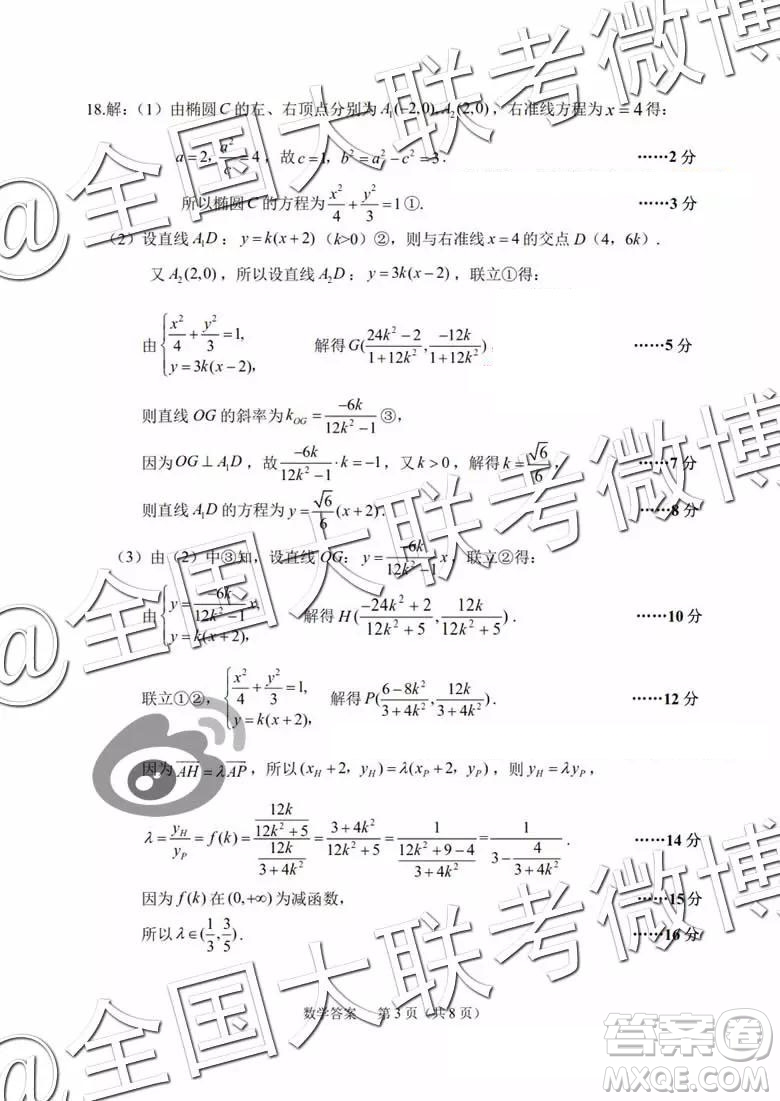 18.解：（1）由椭圆 C 的左、右顶点分别为 A₁(−2,0), A₂(2,0)，右准线方程为 x = 4 得：
a = 2, a²/c = 4，故 c = 1, b² = a² − c² = 3. ……2 分
所以椭圆 C 的方程为 x²/4 + y²/3 = 1 ①. ……3 分
（2）设直线 A₁D：y = k(x + 2)（k>0）②，则与右准线 x = 4 的交点 D（4，6k）.
又 A₂(2,0)，所以设直线 A₂D：y = 3k(x − 2)，联立①得：
由 { x²/4 + y²/3 = 1, y = 3k(x − 2), 解得 G((24k² − 2)/(1 + 12k²), −12k/(1 + 12k²)) ……5 分
则直线 OG 的斜率为 k_OG = −6k/(12k² − 1) ③,
因为 OG ⊥ A₁D，故 −6k/(12k² − 1) · k = −1，又 k > 0，解得 k = √6/6, ……7 分
则直线 A₁D 的方程为 y = √6/6 (x + 2). ……8 分
（3）由（2）中③知，设直线 OG：y = −6k/(12k² − 1) x，联立②得：
由 { y = −6k/(12k² − 1) x, y = k(x + 2), 解得 H((−24k² + 2)/(12k² + 5), 12k/(12k² + 5)). ……10 分
联立①②，{ x²/4 + y²/3 = 1, y = k(x + 2), 解得 P((6 − 8k²)/(3 + 4k²), 12k/(3 + 4k²)). ……12 分
因为 AH = λAP，所以 (x_H + 2, y_H) = λ(x_P + 2, y_P)，则 y_H = λy_P,
λ = y_H/y_P = f(k) = (12k/(12k² + 5))/(12k/(3 + 4k²)) = (3 + 4k²)/(12k² + 5) = 1/((12k² + 9 − 4)/(3 + 4k²)) = 1/(3 − 4/(3 + 4k²)). ……14 分
因为 f(k) 在 (0,+∞) 为减函数, ……15 分
所以 λ ∈ (1/3, 3/5). ……16 分
数学答案 第 3 页（共 8 页）
@全国大联考微博
@全国大联考微博
@全国大联考微博
答案卷
MXQE.COM